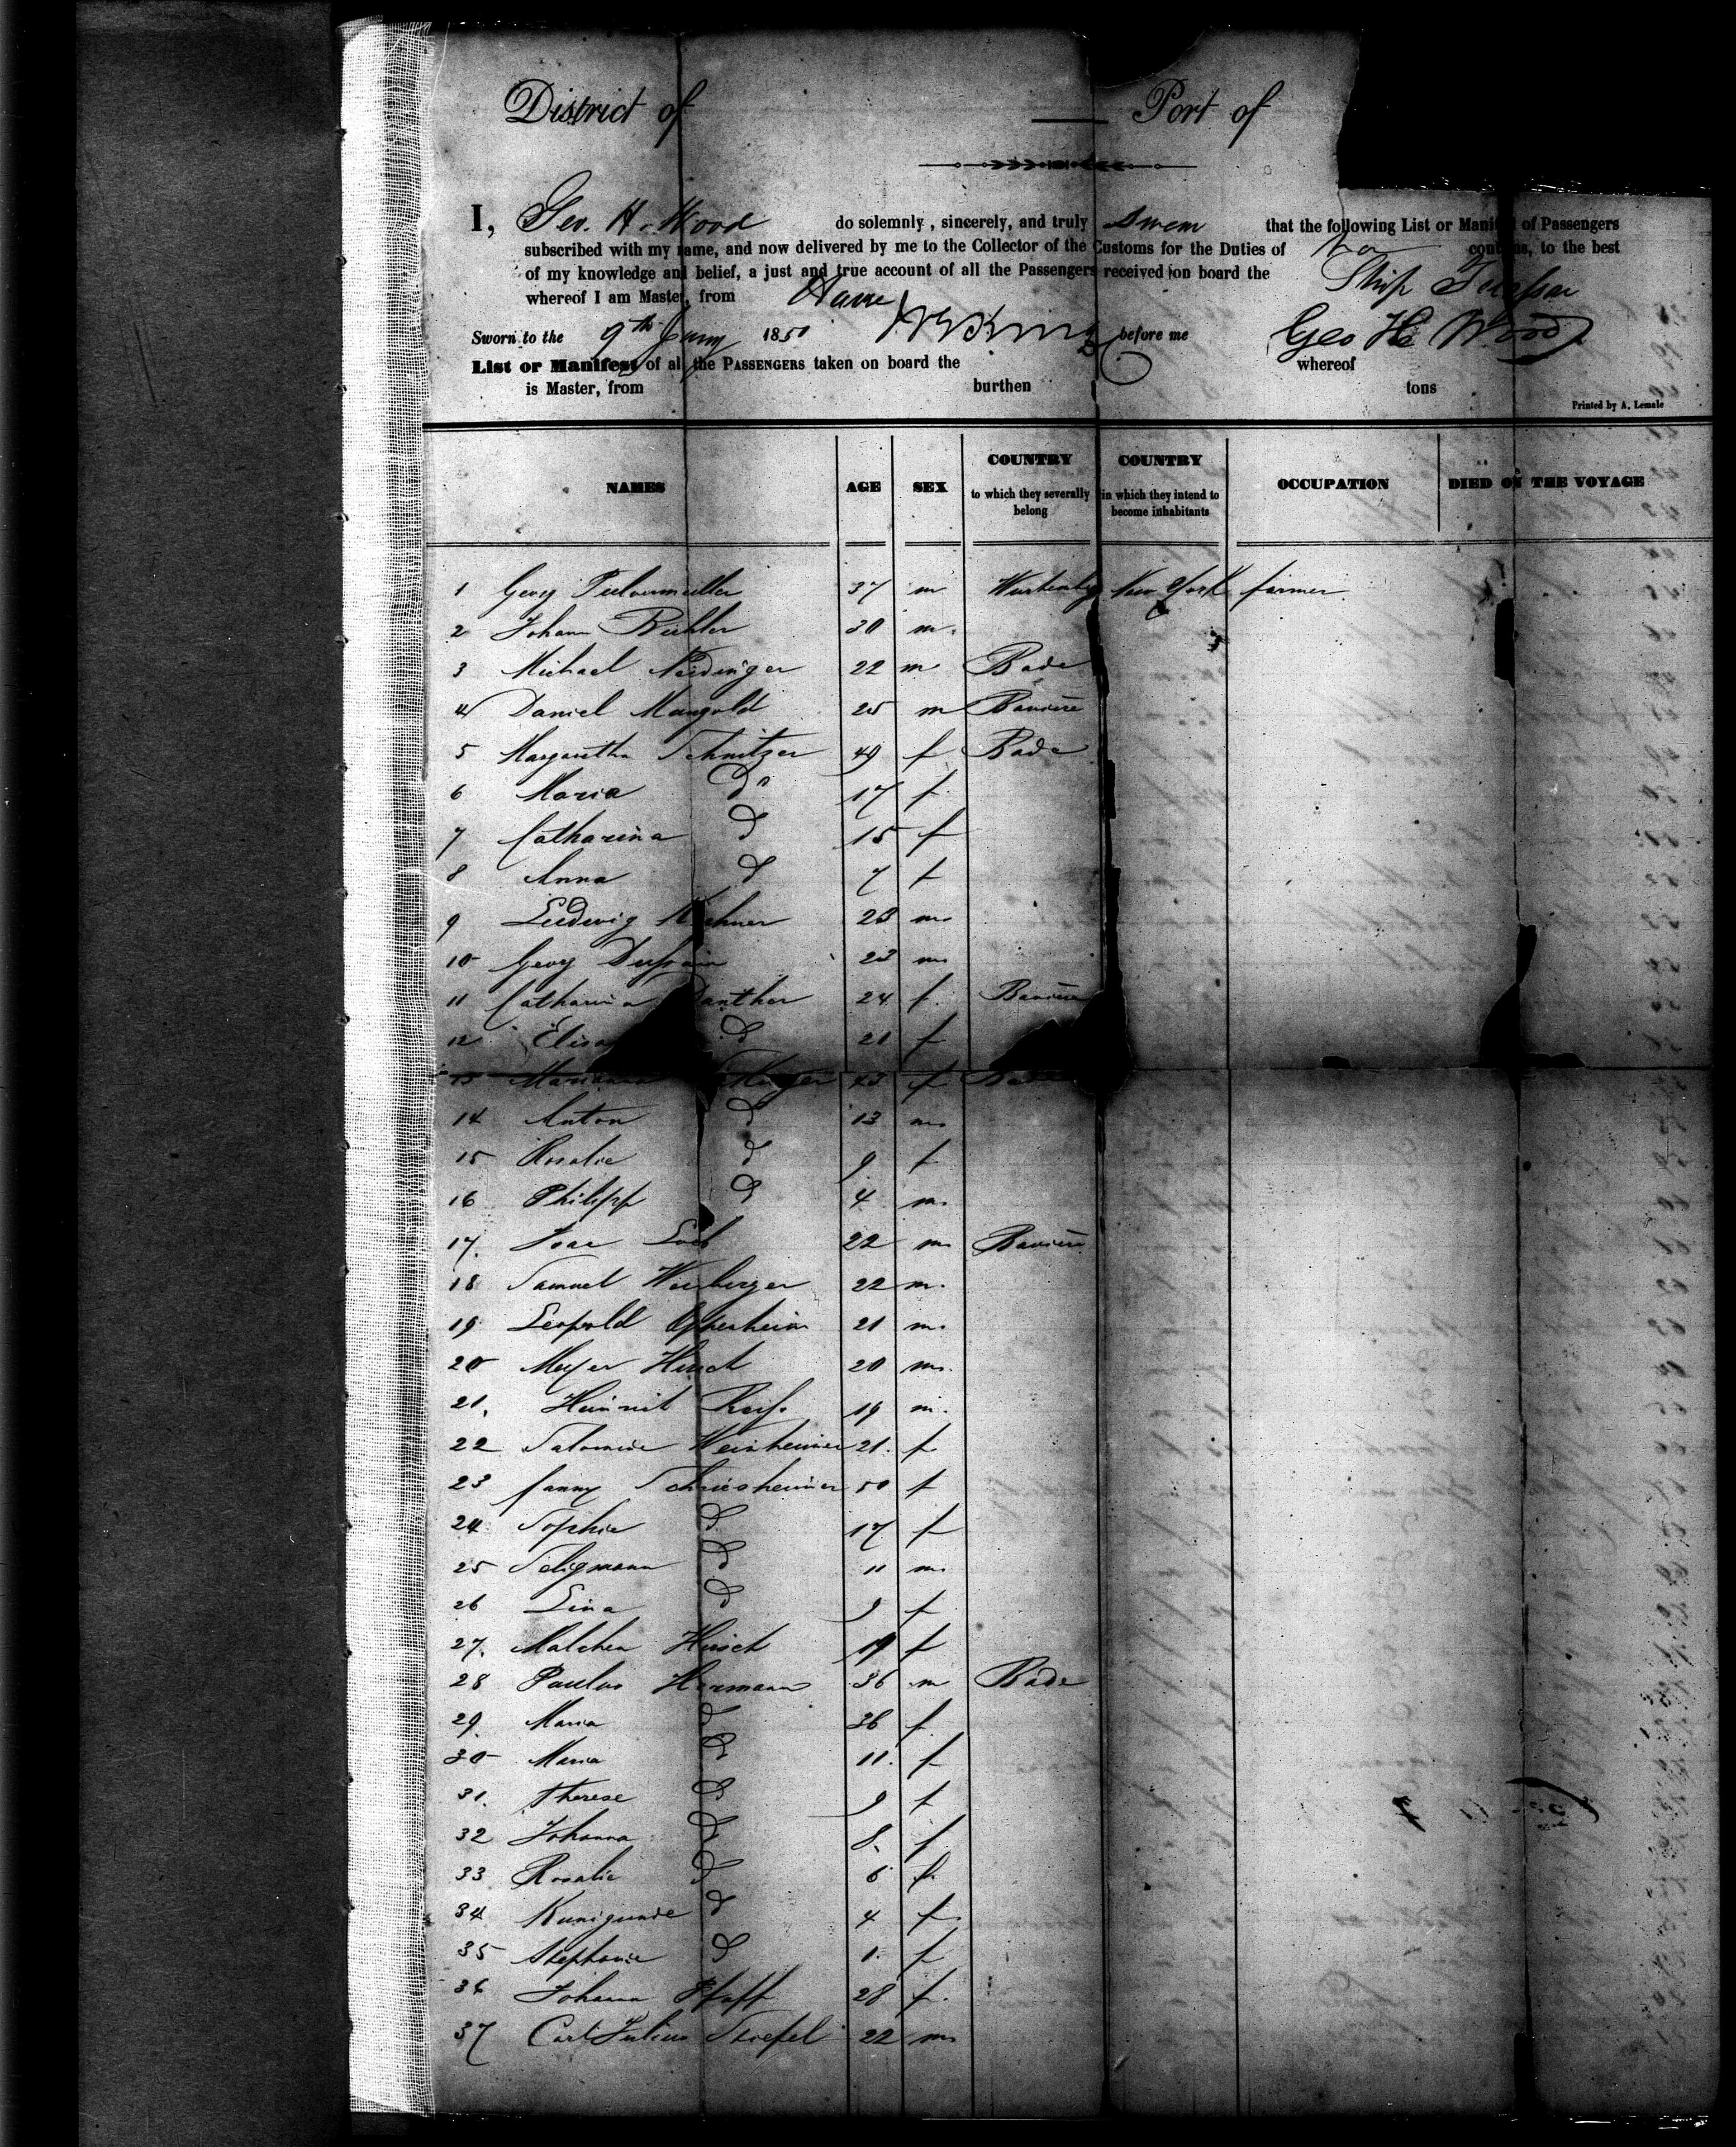 District of Port of
I, Geo. H. Wood do solemnly, sincerely, and truly Swear that the following List or Manifest of Passengers
subscribed with my name, and now delivered by me to the Collector of the Customs for the Duties of contains, to the best
of my knowledge and belief, a just and true account of all the Passengers received on board the Ship
whereof I am Master, from Havre
Sworn to the 9th Jany 1850 before me Geo H. Wood
List or Manifest of all the PASSENGERS taken on board the whereof
is Master, from burthen tons
Printed by A. Lemale
NAMES AGE SEX COUNTRY to which they severally belong COUNTRY in which they intend to become inhabitants OCCUPATION DIED ON THE VOYAGE
1 Georg 37 m Wurtenbg New York farmer
2 Johann 30 m.
3 Michael Neidinger 22 m Bade
4 Daniel Mangold 25 m Baviere
5 Margaretha Schnitzer 49 f Bade
6 Maria do 17 f.
7 Catharina d 15 f
8 Anna d 7 f
9 Ludwig 23 m
10 Georg 23 m
11 Catharina Panther 24 f. Baviere
12 d 21 f
13 43 f Bade
14 Anton d 13 m
15 Rosalie d 9 f
16 Philipp d 4 m.
17. Isac Loeb 22 m Baviere
18 Samuel 22 m.
19 Leopold Openheim 21 m.
20 Meyer Hirsch 20 m.
21. 19 m.
22 Salomine Weinheimer 21. f
23 fanny Schriesheimer 50 f
24 Sophie d. 17 f
25 Seligmann d 11 m.
26 Lina d 9 f
27. Malchen Hirsch 19 f
28 Paulus Hermann 36 m Bade
29. Maria d 36 f.
30 Maria d 11. f
31. Therese d 9 f
32 Johanna d 8. f.
33 Rosalie d 6 f.
34 Kunigunde d 4 f.
35 Stephanie d 1. f
36 Johanna Pfaff 28 f.
37 Carl Julius Stiefel 22 m